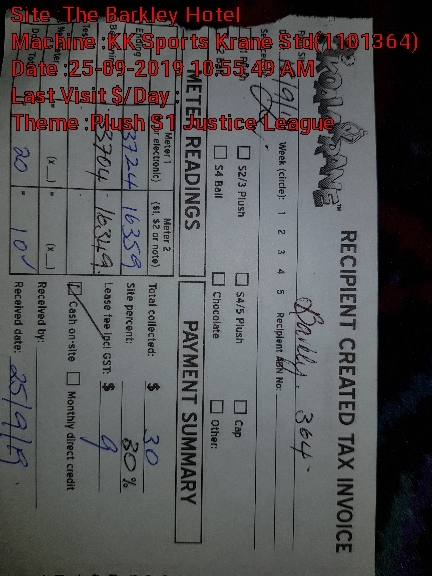 Site :The Barkley Hotel
Machine :KK Sports Krane Std(1101364)
Date :25-09-2019 10:55:49 AM
Last Visit $/Day :
Theme :Plush $1 Justice League
RECIPIENT CREATED TAX INVOICE
364
Week (circle): 1 2 3 4 5 Recipient ABN No:
$2/3 Plush $4/5 Plush Cap
$4 Ball Chocolate Other:
METER READINGS
PAYMENT SUMMARY
Meter 1
electronic)
Meter 2
($1, $2 or note)
3724 16359
3704 16349
(x__) (x__)
20 = 10
Total collected: $ 30
Site percent: 30 %
Lease fee incl GST: $ 9
Cash on-site Monthly direct credit
Received by:
Received date: 25/9/19